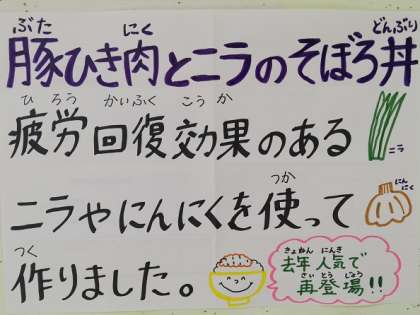 ぶた にく どんぶり
豚ひき肉とニラのそぼろ丼
ひ ろう かいふく こう か
疲労回復効果のある
ニラ
つか
ニラやにんにくを使って
にんにく
つく
作りました。
きょねん にんき
去年人気で
さい とう じょう
再登場!!